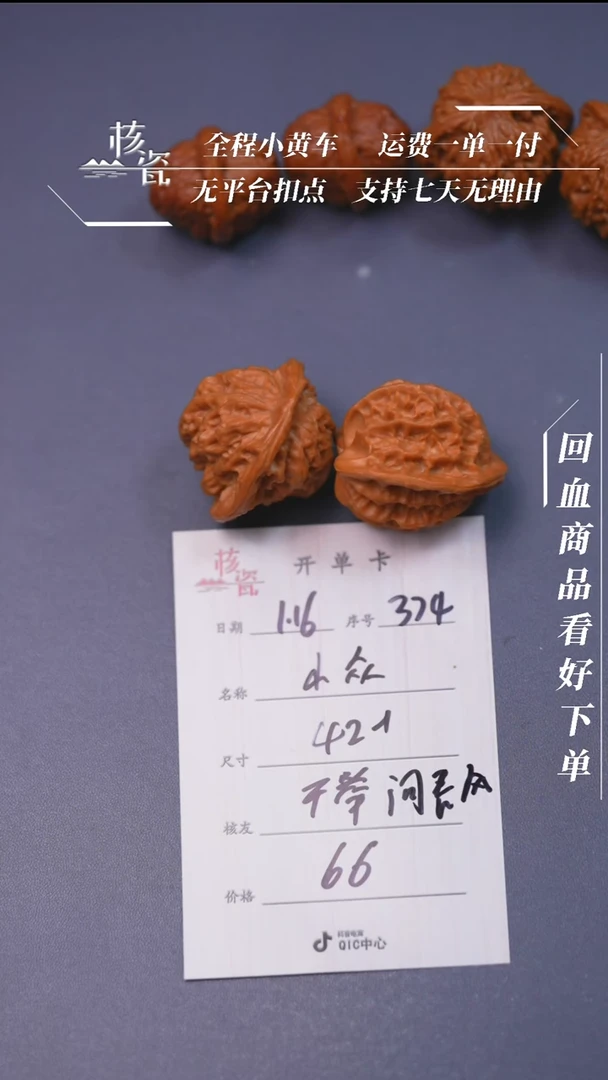 核瓷
全程小黄车 运费一单一付
无平台扣点 支持七天无理由
回血商品看好下单
核瓷
开单卡
日期 1.16 序号 374
名称 小众
尺寸 42+
核友
价格 66
抖音电商
QIC中心